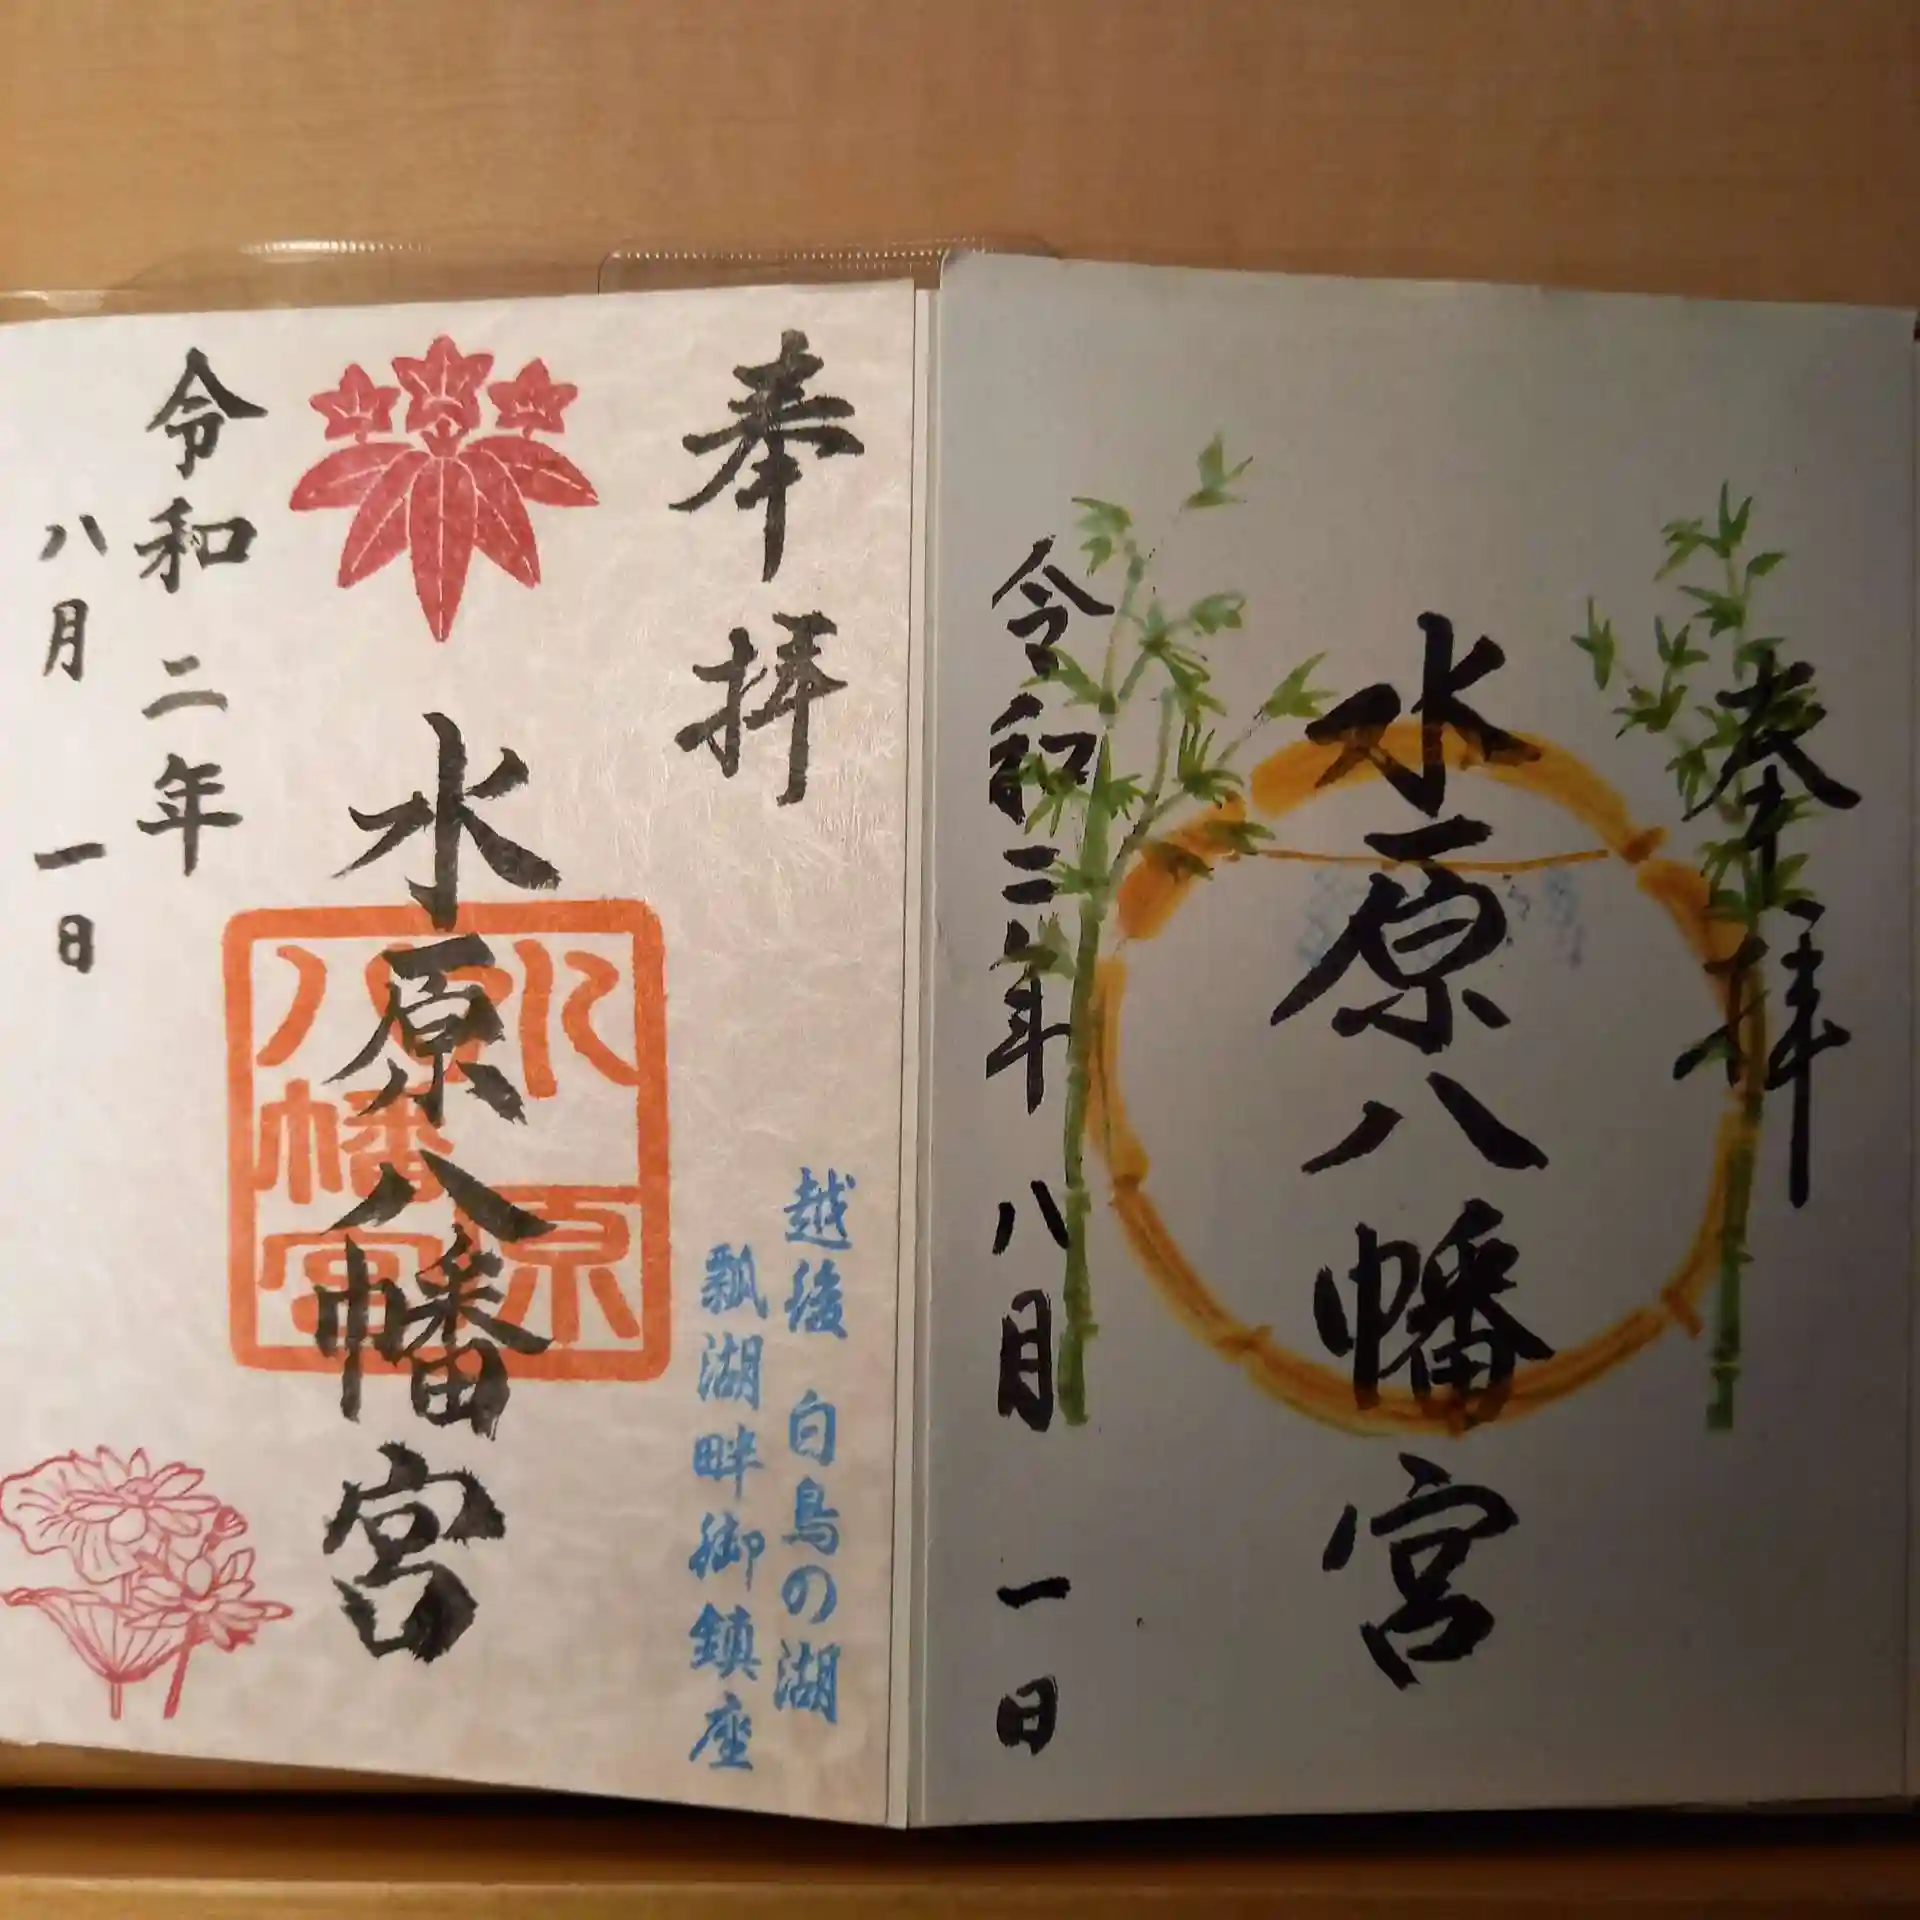 奉拝
水原八幡宮
令和二年
八月一日
奉拝
越後 白鳥の湖
瓢湖畔御鎮座
水原八幡宮
水原八幡宮
令和二年
八月 一日